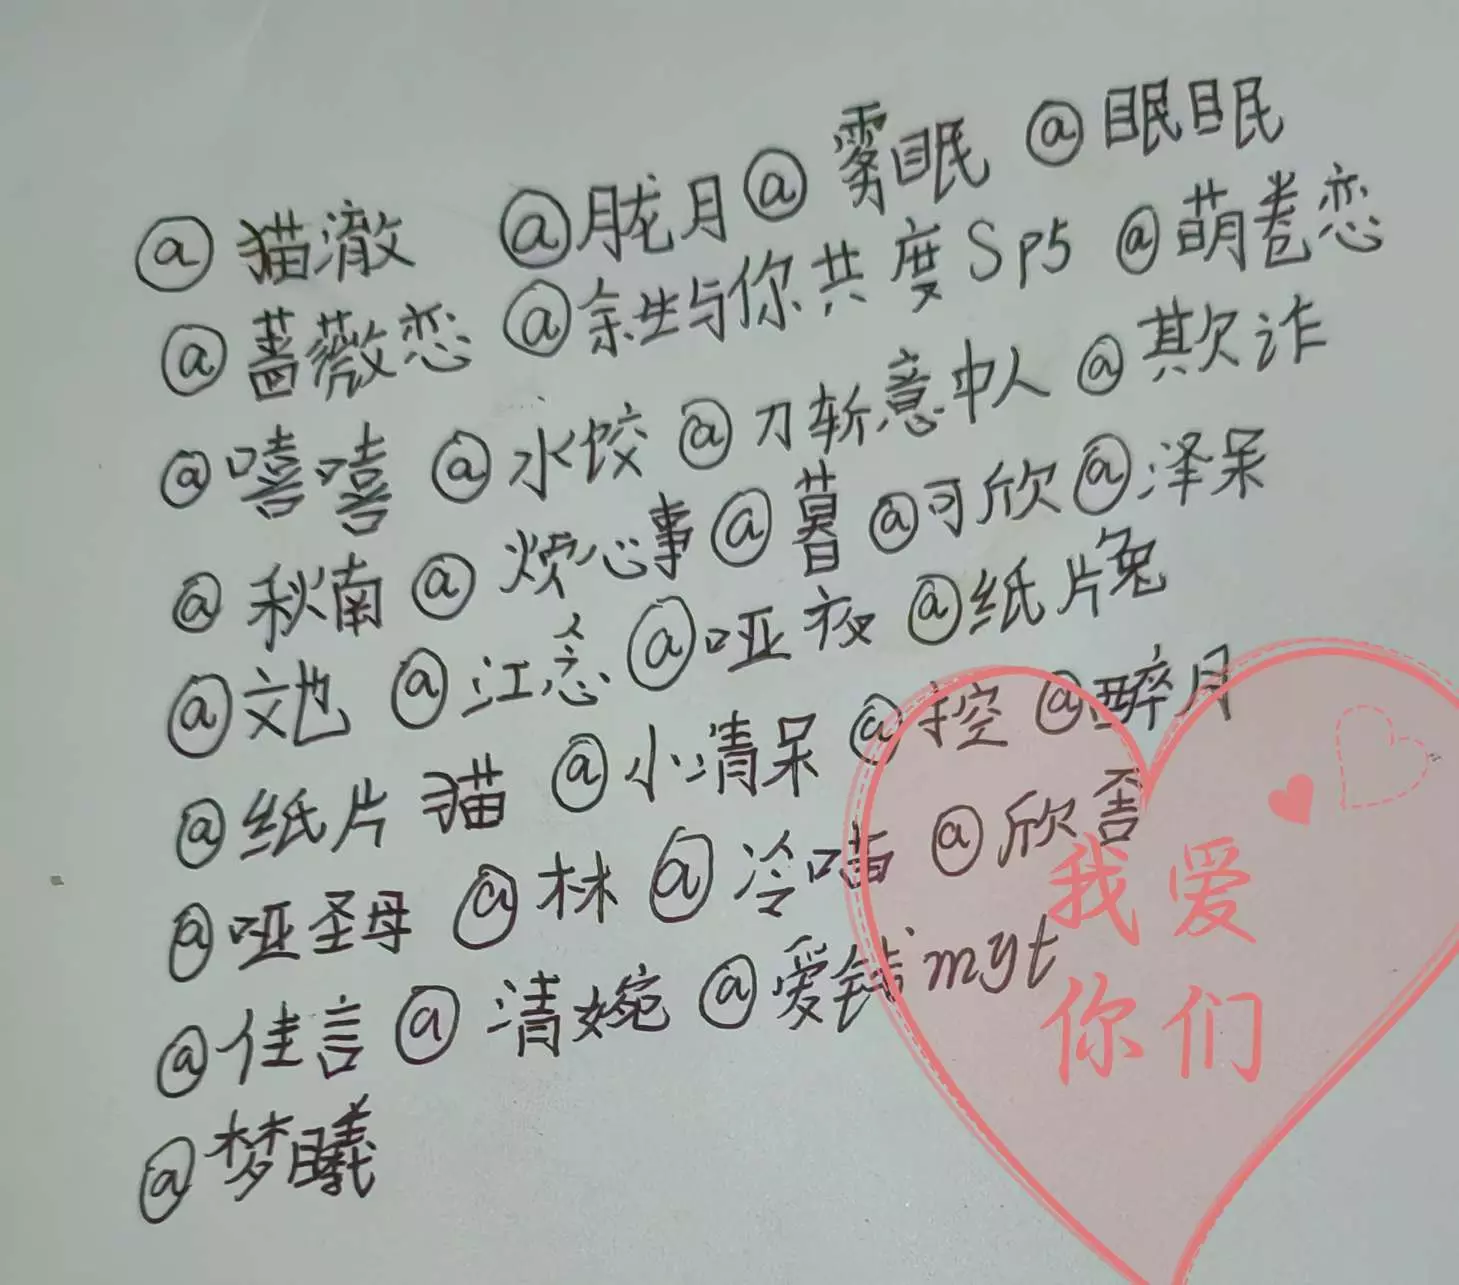 @猫澈 @胧月 @雾眠 @眠眠
@蔷薇恋 @余生与你共度Sp5 @萌卷恋
@嘻嘻 @水饺 @刀斩意中人 @欺诈
@秋南 @烦心事 @暮 @可欣 @泽呆
@文也 @江念 @哑夜 @纸片兔
@纸片猫 @小清呆 @控 @醉月
@哑圣母 @林 @冷喵 @欣吾
@佳言 @清婉 @爱钱myt
@梦曦
我爱
你们